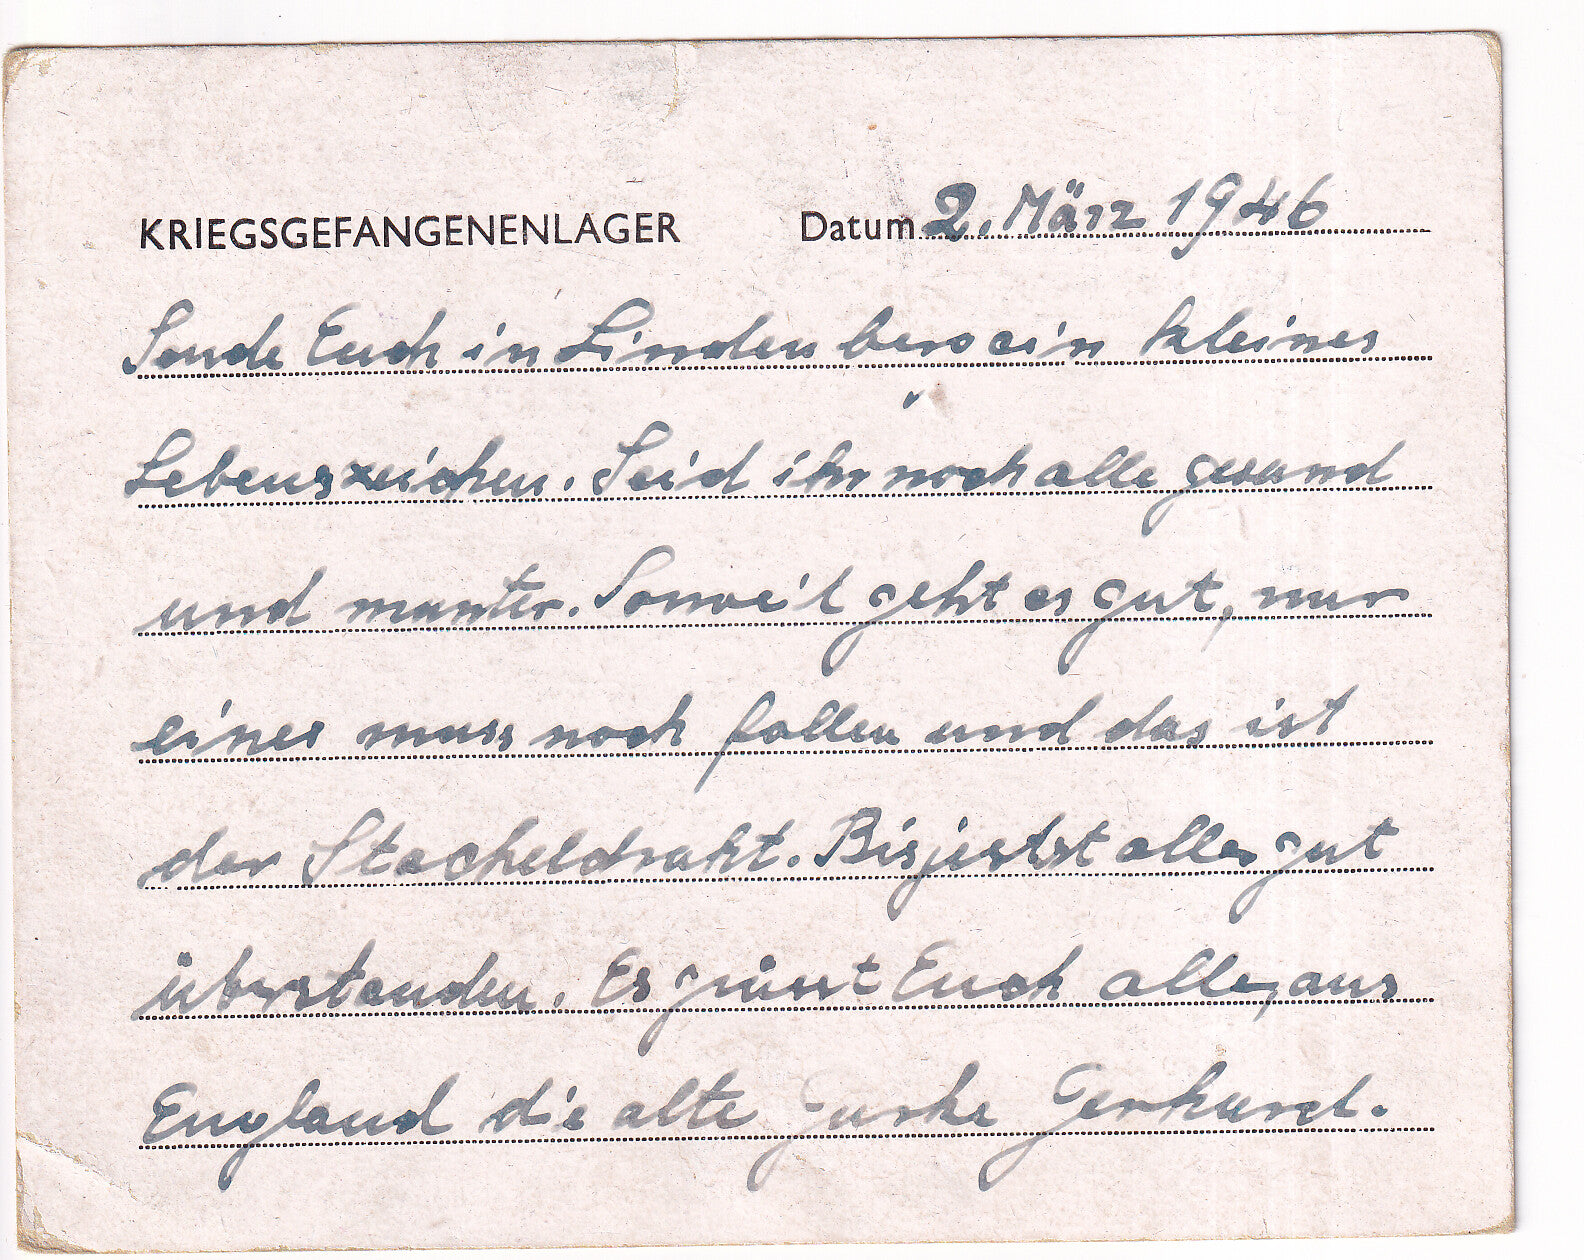 KRIEGSGEFANGENENLAGER Datum 2. März 1946
Sende Euch in Linden ein kleines
Lebenszeichen. Seid ihr noch alle gesund
und munter. Soweit geht es gut, nur
eines muss noch fallen und das ist
der Stacheldraht. Bis jetzt alles gut
überstanden. Es grüsst Euch alle, aus
England die alte Gurke Gerhard.